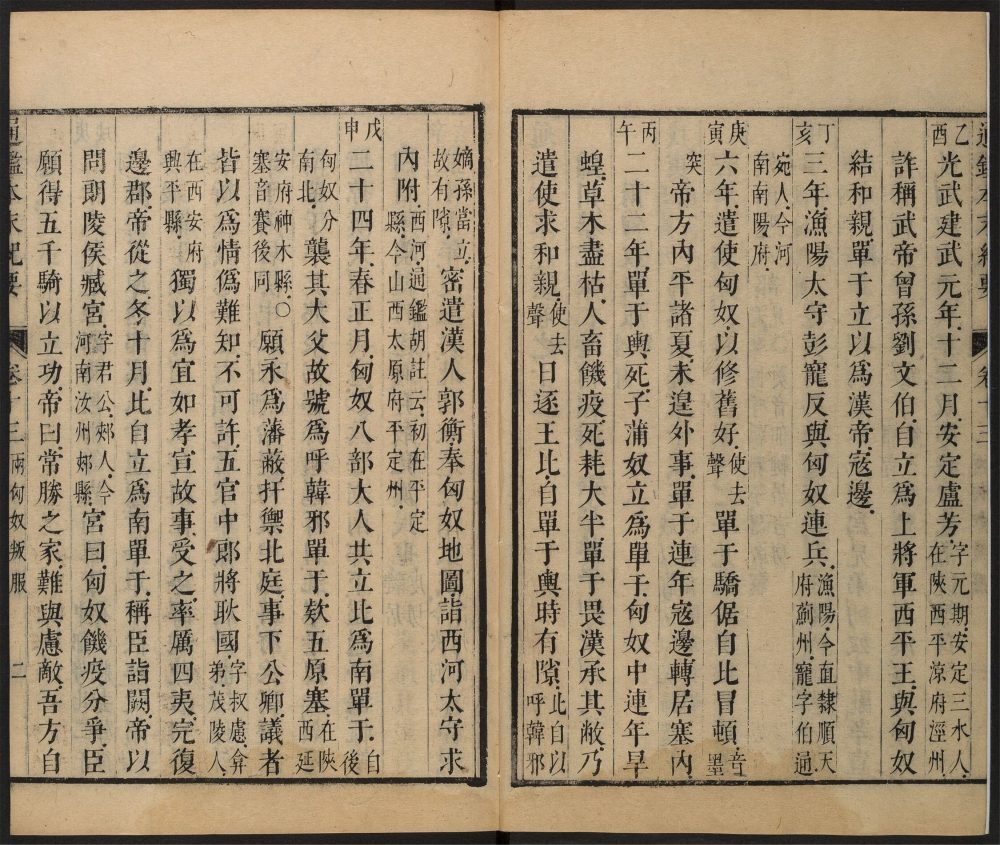 通鑑本末紀要 卷十三
乙酉 光武建武元年十二月安定盧芳字元期安定三水人今在陝西平凉府涇州
詐稱武帝曾孫劉文伯自立爲上將軍西平王與匈奴
結和親單于立以爲漢帝寇邊
丁亥 三年漁陽太守彭寵反與匈奴連兵漁陽今直隸順天府薊州寵字伯通
宛人今河南南陽府
庚寅 六年遣使匈奴以修舊好使去聲單于驕倨自比冒頓音墨
突帝方內平諸夏未遑外事單于連年寇邊轉居塞內
丙午 二十二年單于輿死子蒲奴立爲單于匈奴中連年旱
蝗草木盡枯人畜饑疫死耗大半單于畏漢承其敝乃
遣使求和親使去聲日逐王比自單于輿時有隙比自以呼韓邪
嫡孫當立故有隙密遣漢人郭衡奉匈奴地圖詣西河太守求
內附西河通鑑胡註云初在平定縣今山西太原府平定州
戊申 二十四年春正月匈奴八部大人共立比爲南單于自後
匈奴分南北襲其大父故號爲呼韓邪單于欵五原塞在陝西延
安府神木縣塞音賽後同〇願永爲藩蔽扞禦北庭事下公卿議者
皆以爲情僞難知不可許五官中郎將耿國字叔慮弇弟茂陵人
在西安府興平縣獨以爲宜如孝宣故事受之率厲四夷完復
邊郡帝從之冬十月比自立爲南單于稱臣詣闕帝以
問朗陵侯臧宮字君公郟人今河南汝州郟縣宮曰匈奴饑疫分爭臣
願得五千騎以立功帝曰常勝之家難與慮敵吾方自
通鑑本末紀要 卷十三 兩匈奴叛服 二